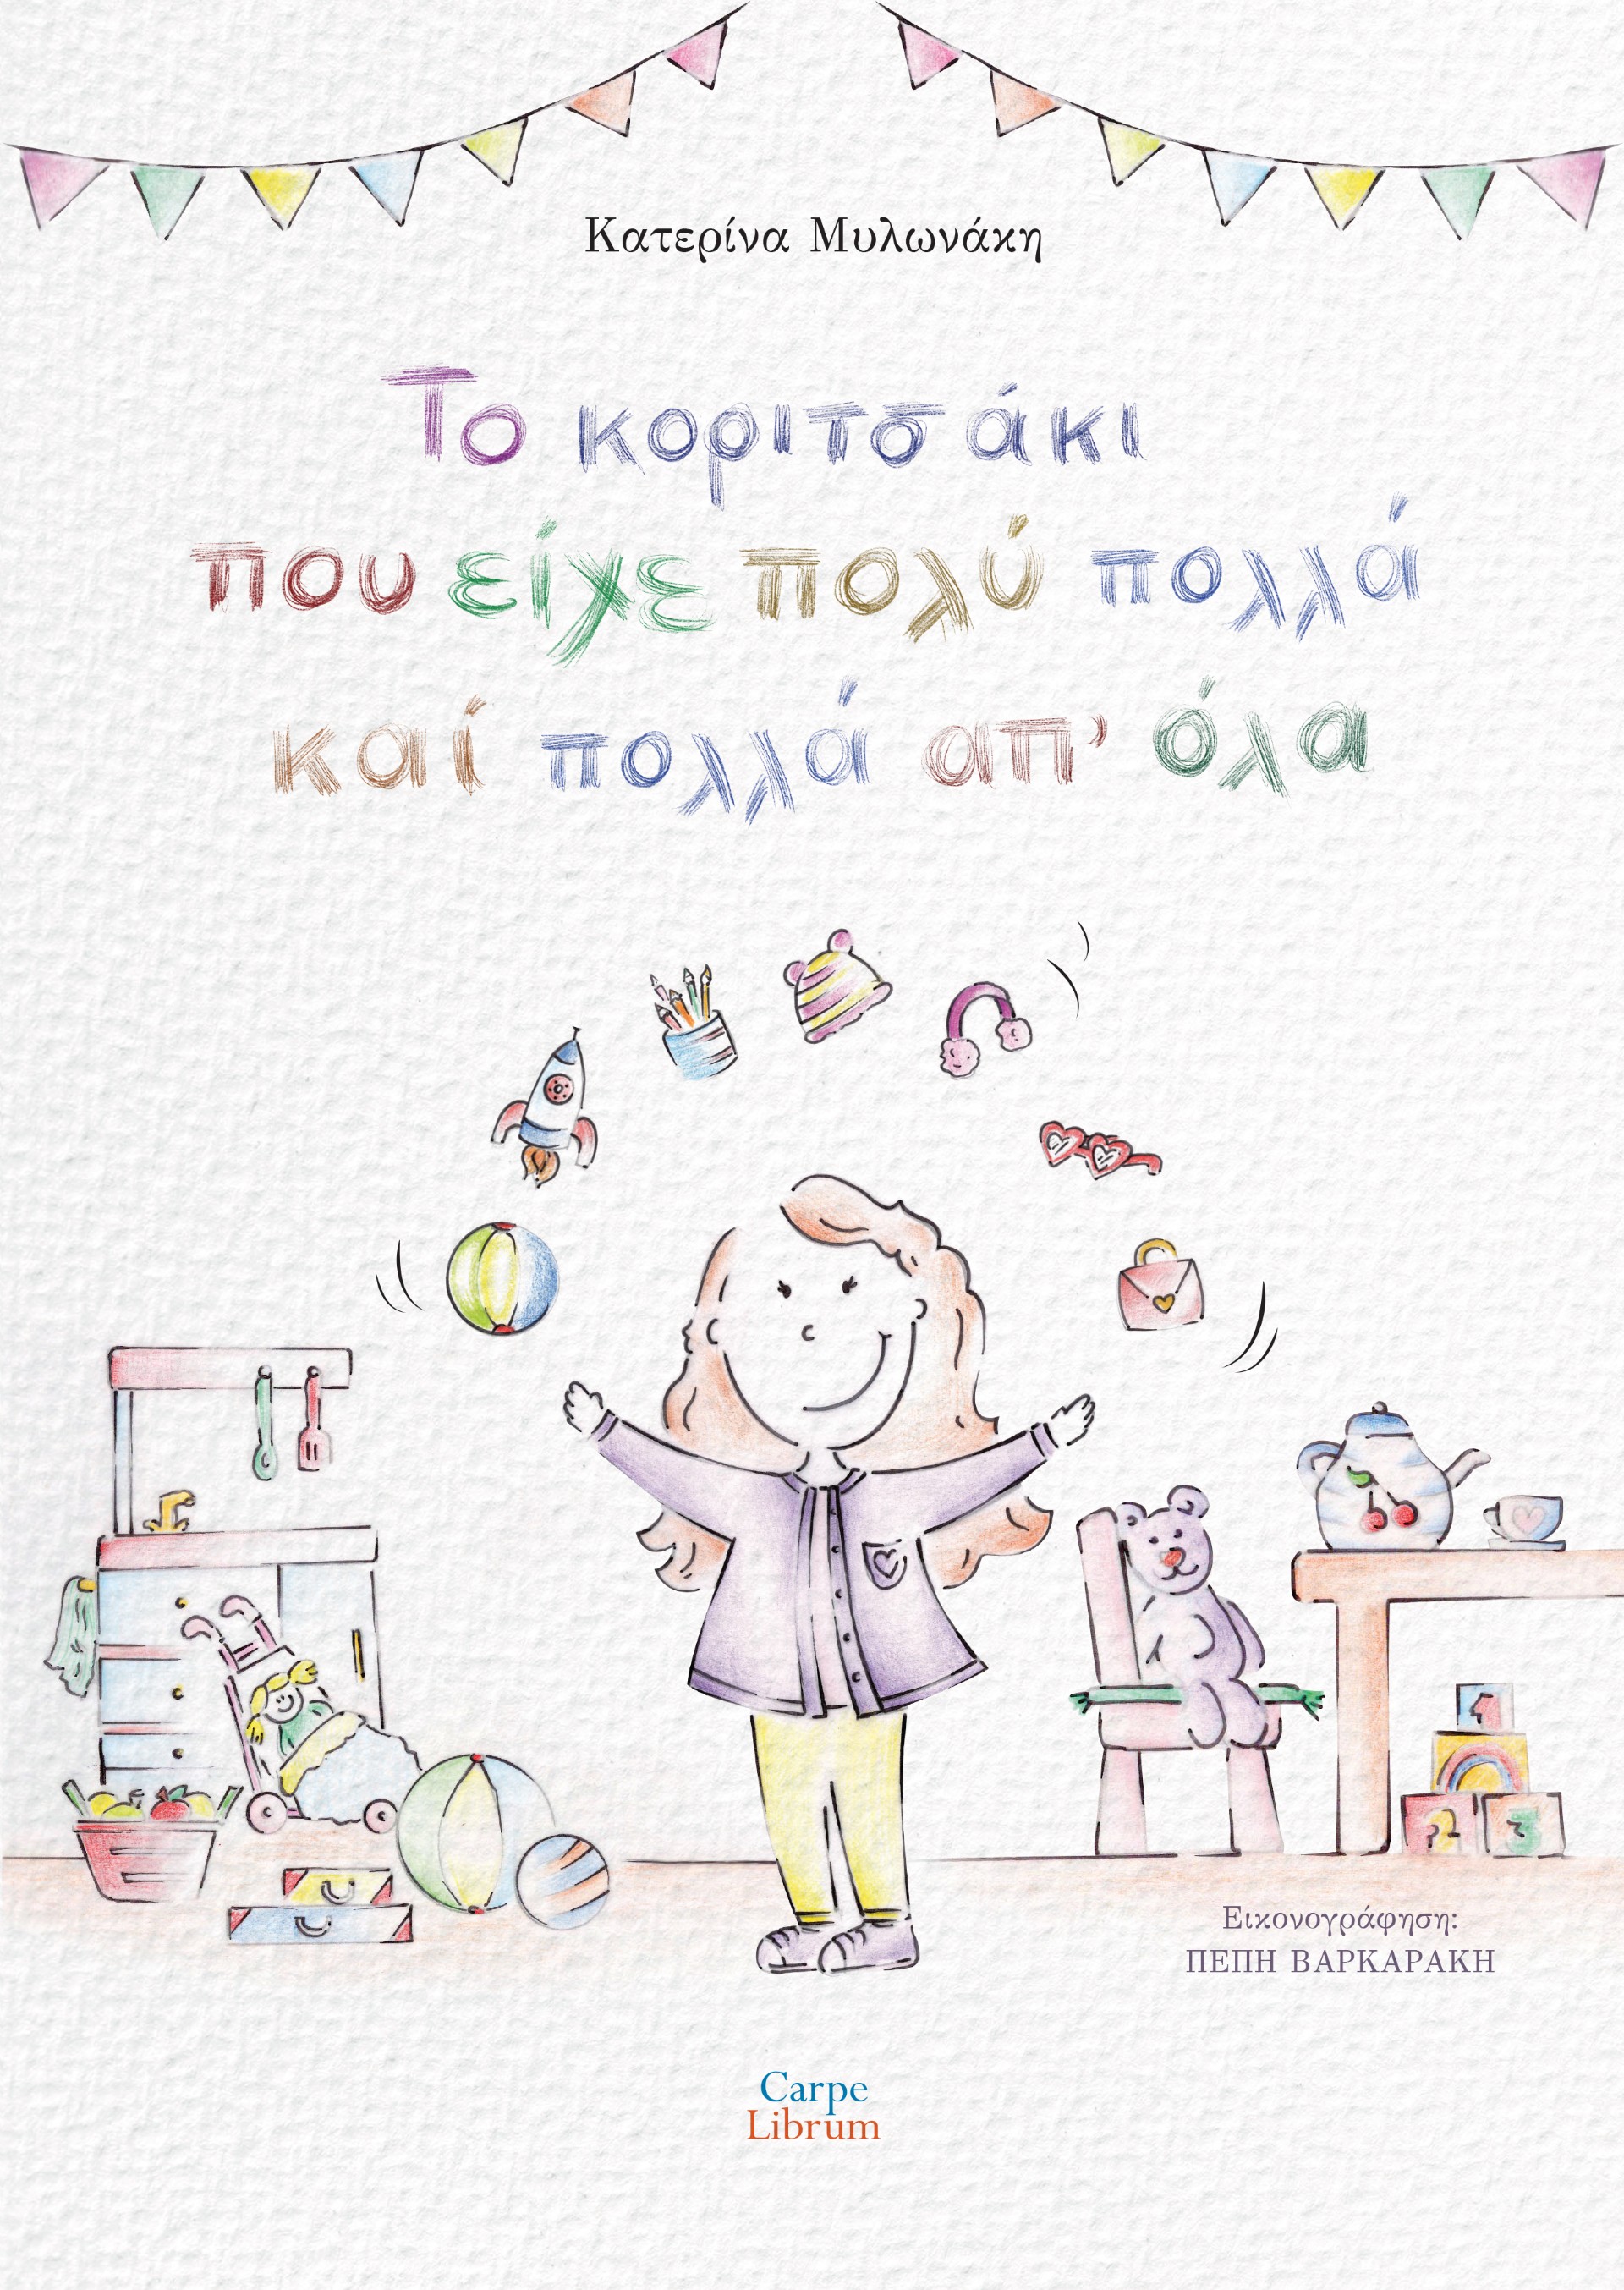 Κατερίνα Μυλωνάκη
Το κοριτσάκι
που είχε πολύ πολλά
καί πολλά απ' όλα
1
2 3
Εικονογράφηση:
ΠΕΠΗ ΒΑΡΚΑΡΑΚΗ
Carpe
Librum